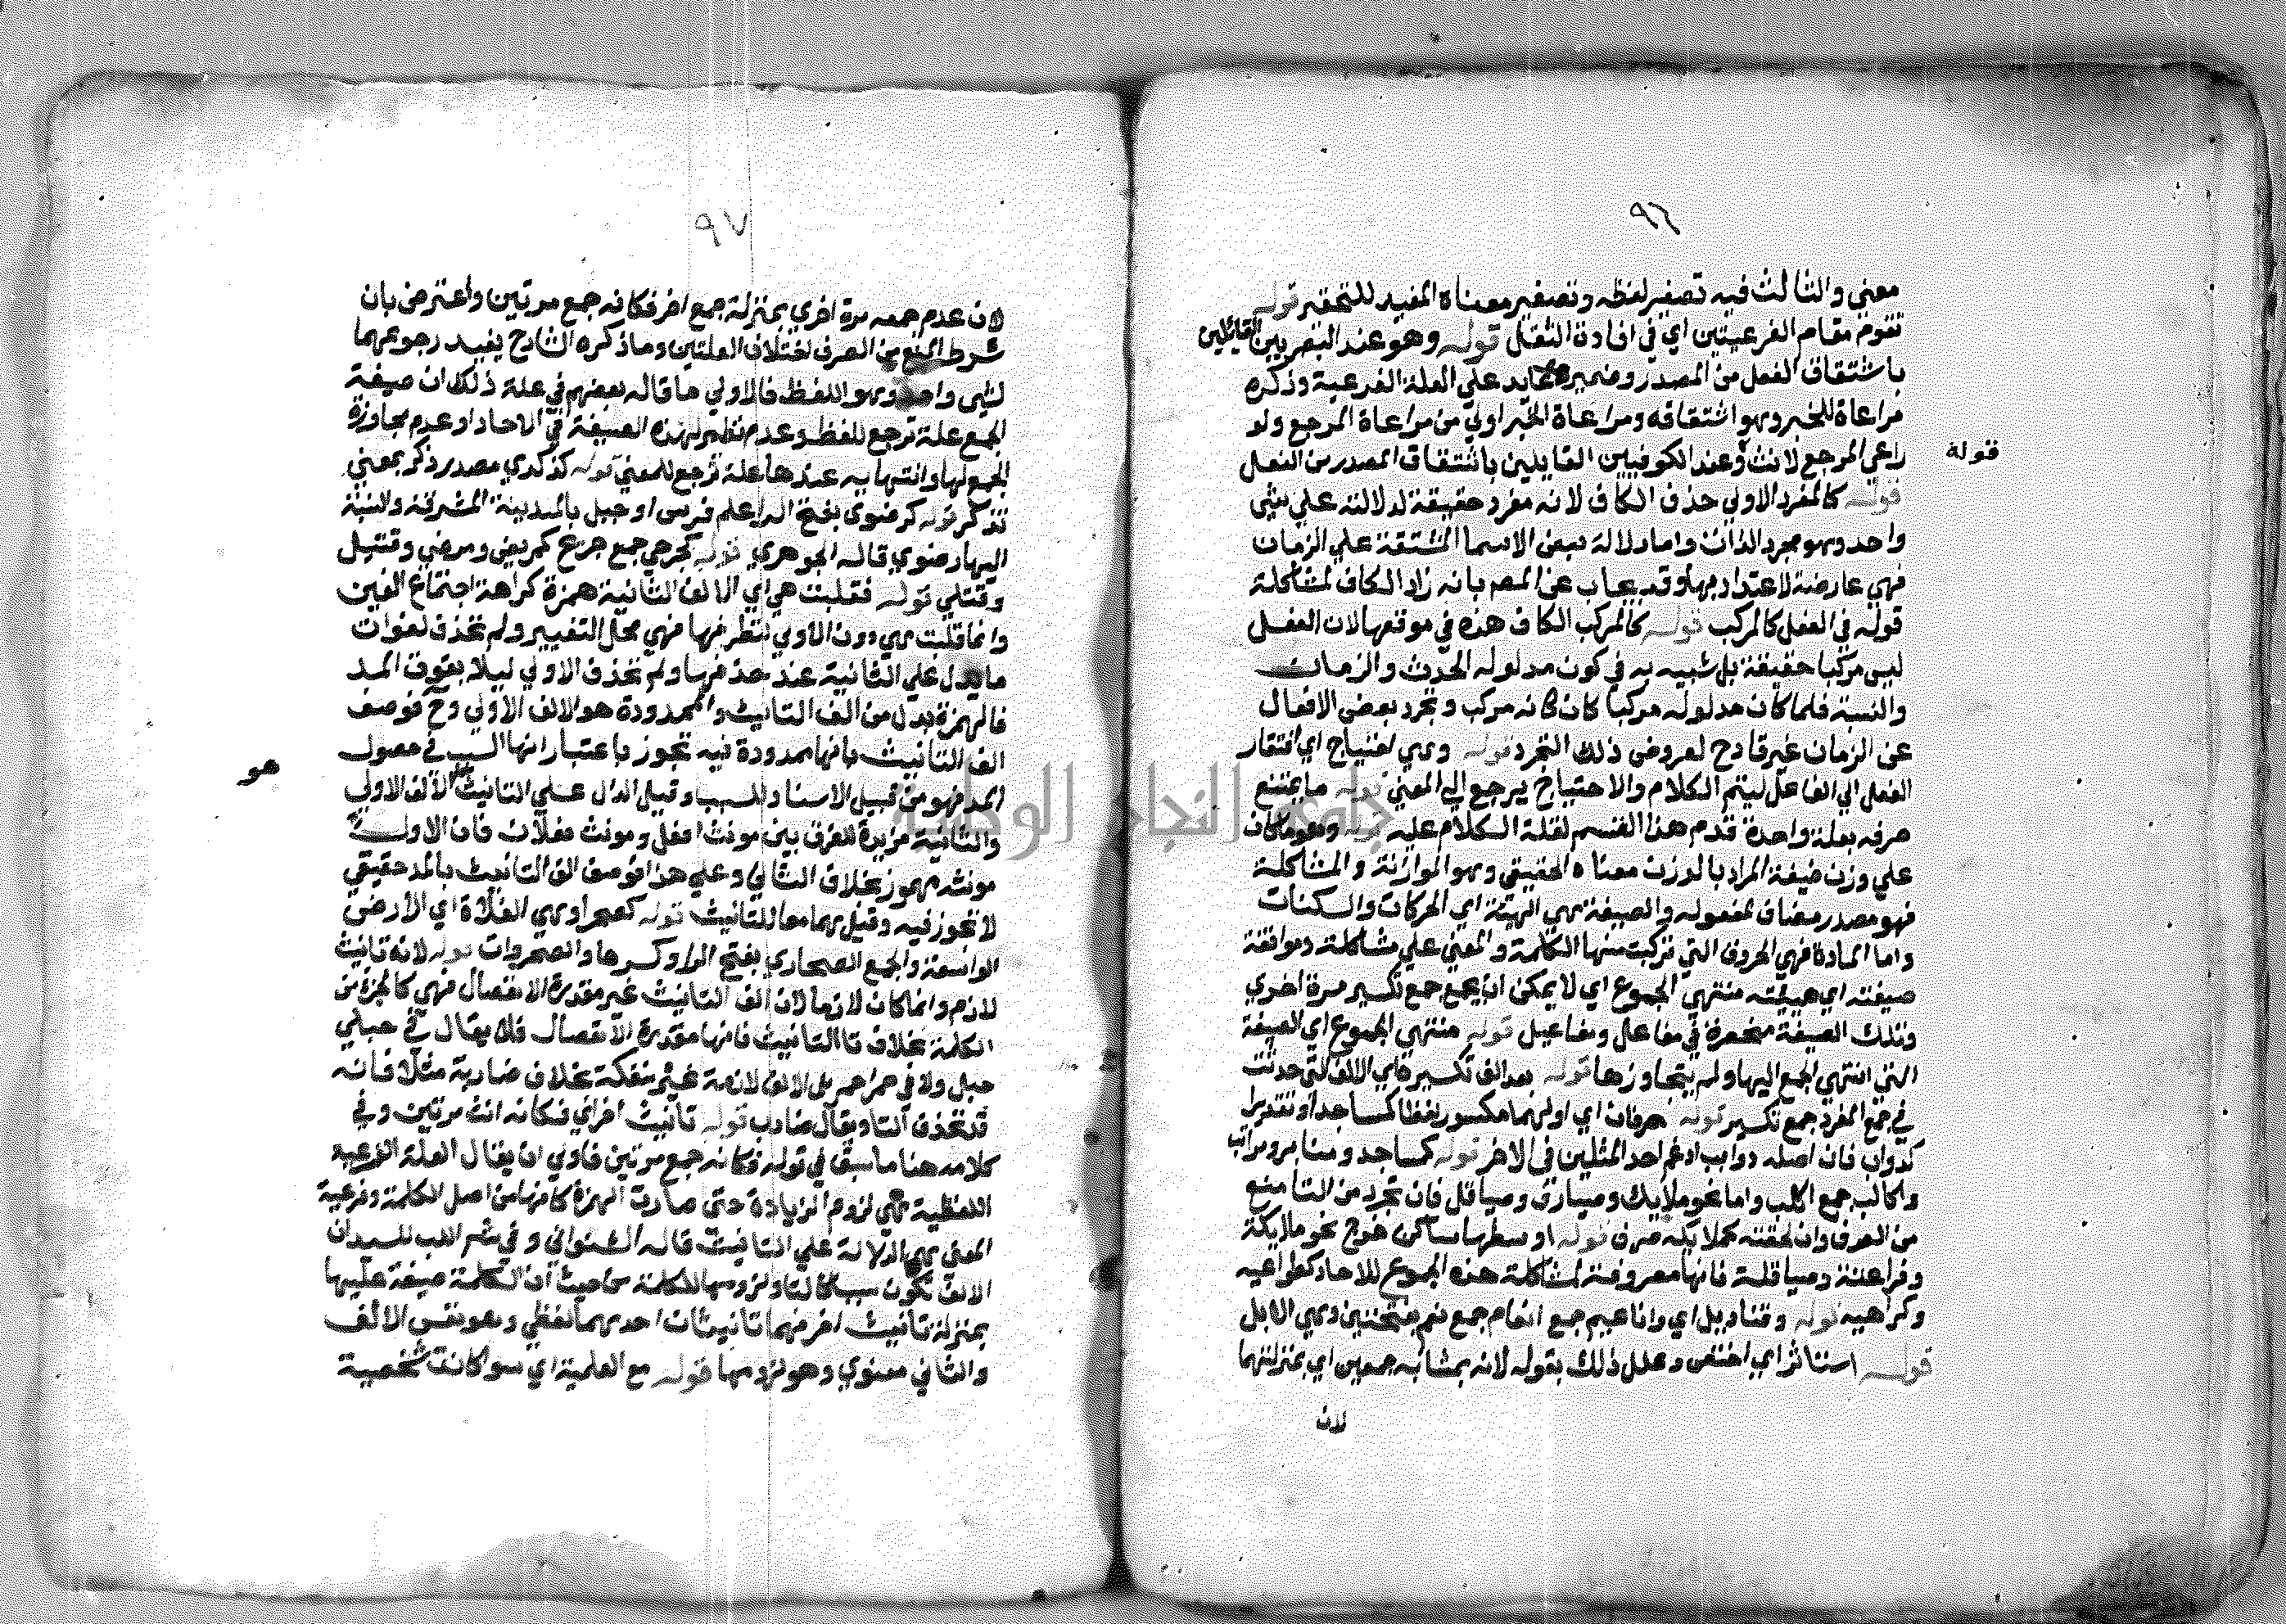 ٩٦
معني والثالث فيه تصغير لفظه وتصغير معناه المفيد للتحقير قوله
تقوم مقام الفرعيتين اي في افادة الثقل قوله وهو عند البصريين القايلين
باشتقاق الفعل من المصدر وضمير عايد علي العلة الفرعية وذكره
مراعاة للخبر وهو اشتقاقه ومراعاة الخبر اولي من مراعاة المرجع ولو
راعي المرجع لانث وعند الكوفيين القايلين باشتقاق المصدر من الفعل
قولة
قوله كالمفرد الاولي حذف الكاف لانه مفرد حقيقة لدلالته علي شي
واحد وهو مجرد الذات واما دلالة بعض الاسما المشتقة علي الزمان
فهي عارضة لا عتداد بها وقد يجاب عن المص بانه زاد الكاف لمشاكلة
قوله في الفعل كالمركب قوله كالمركب الكاف هذه في موقعها لان الفعل
ليس مركبا حقيقة بل شبيه به في كون مدلوله الحدث والزمان
والنسبة فلما كان مدلوله مركبا كان كانه مركب وتجرد بعض الافعال
عن الزمان غير قادح لعروض ذلك التجرد قوله وهي احتياج اي افتقار
الفعل الي الفاعل ليتم الكلام والاحتياج يرجع الي المعني قوله ما يمتنع
صرفه بعلة واحدة قدم هذا القسم لقلة الكلام عليه قوله وهو ما كان
علي وزن صيغة المراد بالوزن معناه الحقيقي وهو الموازنة والمشاكلة
فهو مصدر مضاف لمفعوله والصيغة هي الهيئة اي الحركات والسكنات
واما المادة فهي الحروف التي تركبت منها الكلمة والمعني علي مشاكلته وموافقة
صيغته اي هيئته منتهي الجموع اي لا يمكن ان يجمع جمع تكسير مرة اخري
وتلك الصيغة منحصرة في مفاعل ومفاعيل قوله منتهي الجموع اي الصيغة
التي انتهي الجمع اليها ولم يتجاوزها قوله بعد الف تكسيره اي الالف التي حدثت
في جمع المفرد جمع تكسير قوله حرفان اي اولهما مكسور لفظا كمساجد او تقديرا
كدواب فان اصله دوابب ادغم احد المثلين في الاخر قوله كمساجد ومنابر ومراتب
واكالب جمع اكلب واما نحو ملايك وصيارف وصياقل فان تجرد من التا منع
من الصرف وان لحقته كملايكه صرف قوله اوسطها ساكن خرج نحو ملايكة
وفراعنة وصياقلة فانها مصروفة لمشاكلة هذه الجموع للاحاد كطواعيه
وكراهيه قوله وقناديل اي واناعيم جمع انعام جمع نعم بفتحتين وهي الابل
قوله استاثر اي اختص وعلل ذلك بقوله لانه بمثابه جمعين اي بمنزلتهما
لان
٩٧
لان عدم جمعه مرة اخري بمنزلة جمع اخر فكانه جمع مرتين واعترض بان
شرط المنع من الصرف اختلاف العلتين وما ذكره الشارح يفيد رجوعهما
لشي واحد وهو اللفظ فالاولي ما قاله بعضهم في علة ذلك ان صيغة
الجمع علة ترجع للفظ وعدم نظير لهذه الصيغة في الاحاد او عدم مجاوزة
الجمع لها وانتهايه عندها علة ترجع للمعني قوله كذكري مصدر ذكر بمعني
تذكر قوله كرضوي بفتح الرا علم فرس او جبل بالمدينة المشرفة والنسبة
اليها رضوي قاله الجوهري قوله كجرحي جمع جريح كمريض ومرضي وقتيل
وقتلي قوله فقلبت هي اي الالف الثانية همزة كراهة اجتماع الفين
وانما قلبت هي دون الاولي لتطرفها فهي محل التغيير ولم تحذف لفوات
ما يدل علي الثانية عند حذفها ولم تحذف الاولي ليلا يفوت المد
فالهمزة بدل من الف التانيث والممدودة هو الالف الاولي وح فوصف
الف التانيث بانها ممدودة فيه تجوز باعتبار انها السبب في حصول
هو
المد فهو من قبيل الاسناد للسبب وقيل الدال علي التانيث الالف الاولي
والثانية مزيدة للفرق بين مونث افعل ومونث فعلان فان الاول
مونثه مهموز بخلاف الثاني وعلي هذا فوصف الف التانيث بالمد حقيقي
لا تجوز فيه وقيل هما معا للتانيث قوله كصحرا وهي الفلاة اي الارض
الواسعة والجمع الصحاري بفتح الرا وكسرها والصحروات قوله لانه تانيث
لازم وانما كان لازما لان الف التانيث غير مقدرة الانفصال فهي كالجزء من
الكلمة بخلاف تا التانيث فانها مقدرة الانفصال فلا يقال في حبلي
حبل ولا في حمرا حمر بل الالف لازمة غير منفكة بخلاف ضاربة مثلا فانه
قد تحذف التا ويقال ضارب قوله تانيث اخر اي فكانه انث مرتين وفي
كلامه هنا ما سبق في قوله فكانه جمع مرتين فاولي ان يقال العلة الفرعية
اللفظية هي لزوم الزيادة حتي صارت الهمزة كانها من اصل الكلمة وفرعية
المعني هي الدلالة علي التانيث قاله الشنواني وفي شرح اللب للسيد ان
الالف تكون سببا كالتا ولزومها للكلمة من حيث ان الكلمة صيغة عليها
بمنزلة تانيث اخر فهما تانيثان احدهما لفظي وهو نفس الالف
والثاني معنوي وهو لزومها قوله مع العلمية اي سوا كانت شخصية